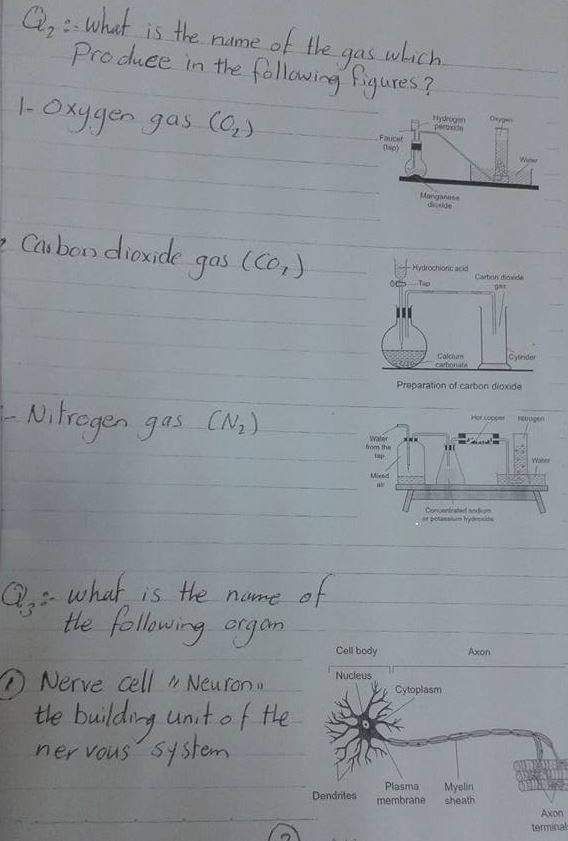 Q₂:- what is the name of the gas which
Produce in the following figures?
1- Oxygen gas (O₂)
Hydrogen peroxide
Oxygen
Faucet (tap)
Water
Manganese dioxide
Carbon dioxide gas (CO₂)
Hydrochloric acid
Carbon dioxide gas
Tap
Calcium carbonate
Cylinder
Preparation of carbon dioxide
- Nitrogen gas (N₂)
Hot copper
nitrogen
Water from the tap
Water
Mixed air
Concentrated sodium
or potassium hydroxide
Q₃:- what is the name of
the following organ
① Nerve cell "Neuron"
the building unit of the
nervous system
Cell body
Axon
Nucleus
Cytoplasm
Dendrites
Plasma membrane
Myelin sheath
Axon terminal